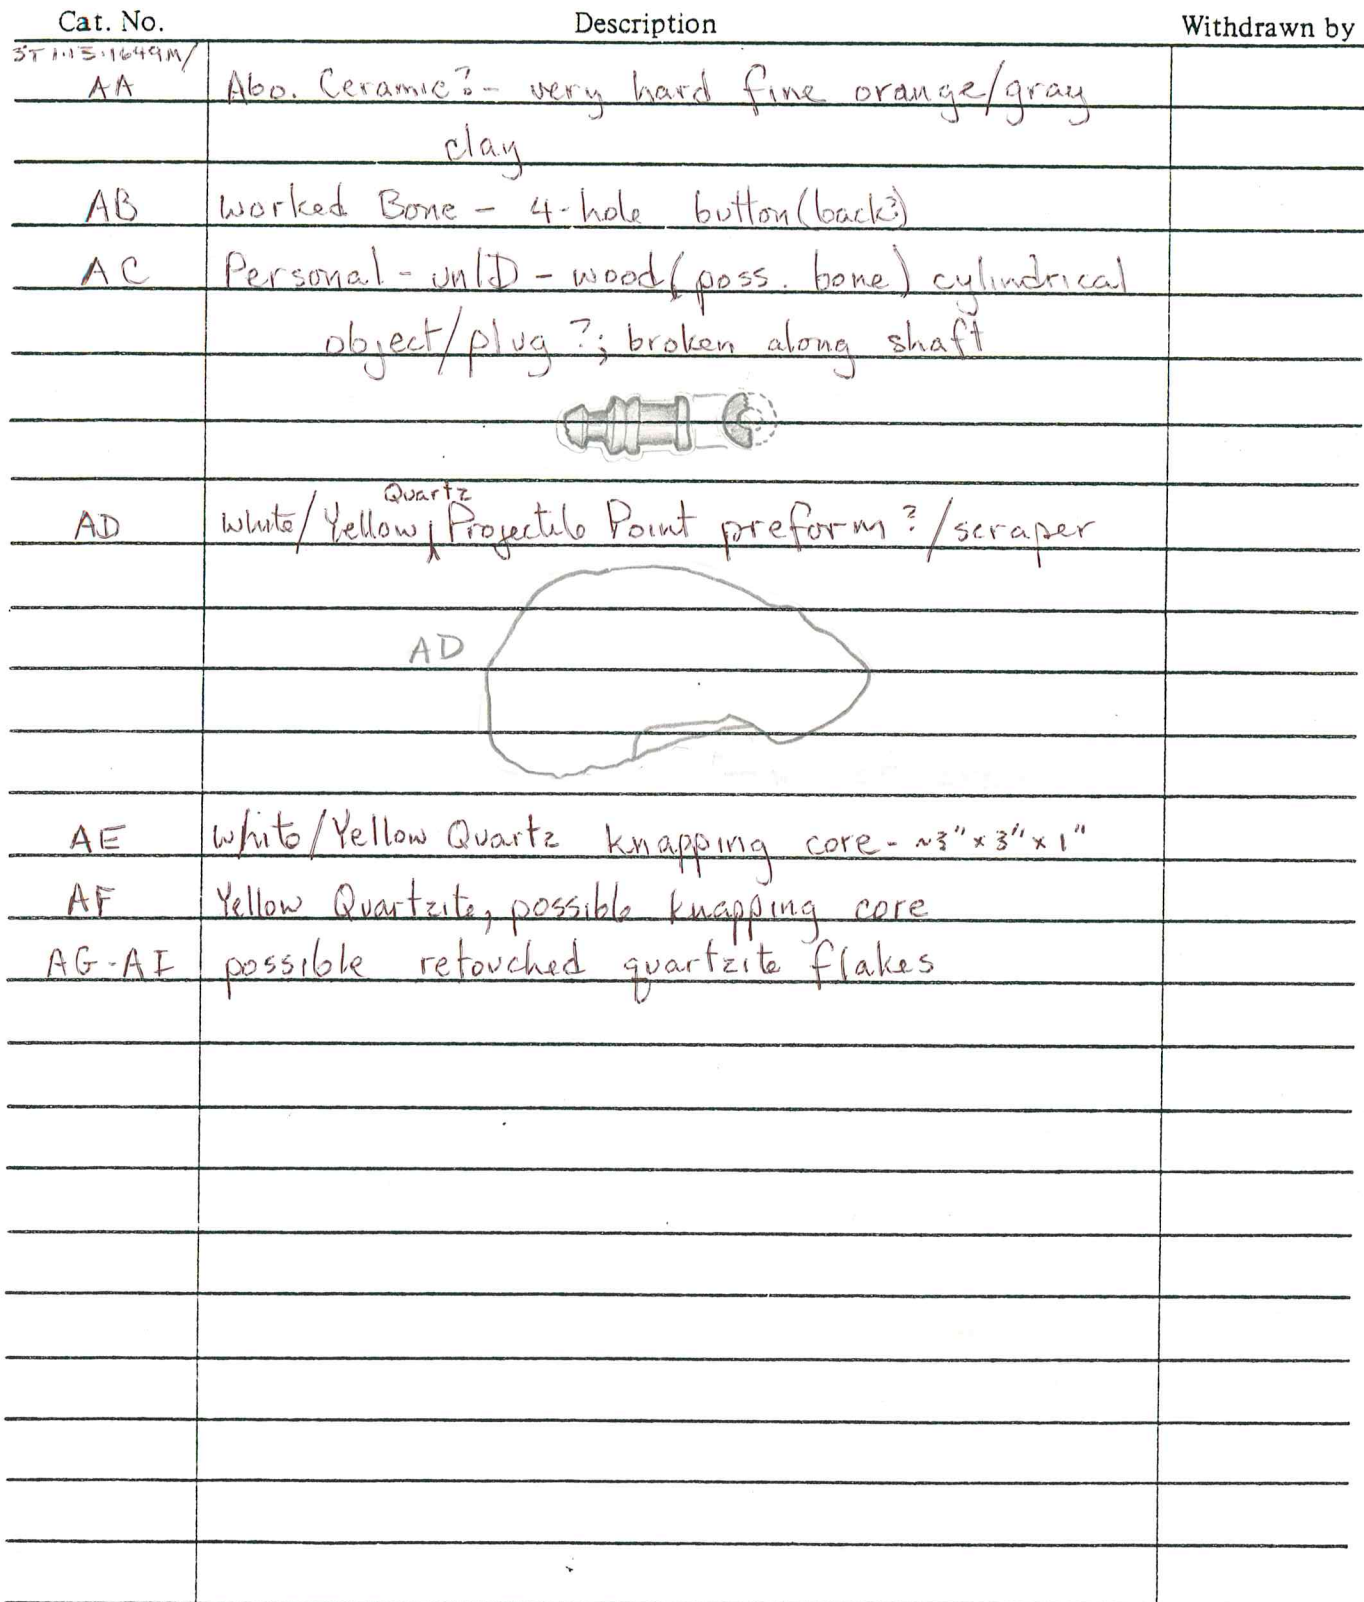 Cat. No. Description Withdrawn by
ST1.15.1649M/
AA Abo. Ceramic? - very hard fine orange/gray
clay
AB Worked Bone - 4-hole button (back?)
AC Personal - unID - wood (poss. bone) cylindrical
object/plug?; broken along shaft
Quartz
AD White/Yellow ^ Projectile Point preform?/scraper
AD
AE White/Yellow Quartz knapping core - ~3" x 3" x 1"
AF Yellow Quartzite, possible knapping core
AG-AI possible retouched quartzite flakes